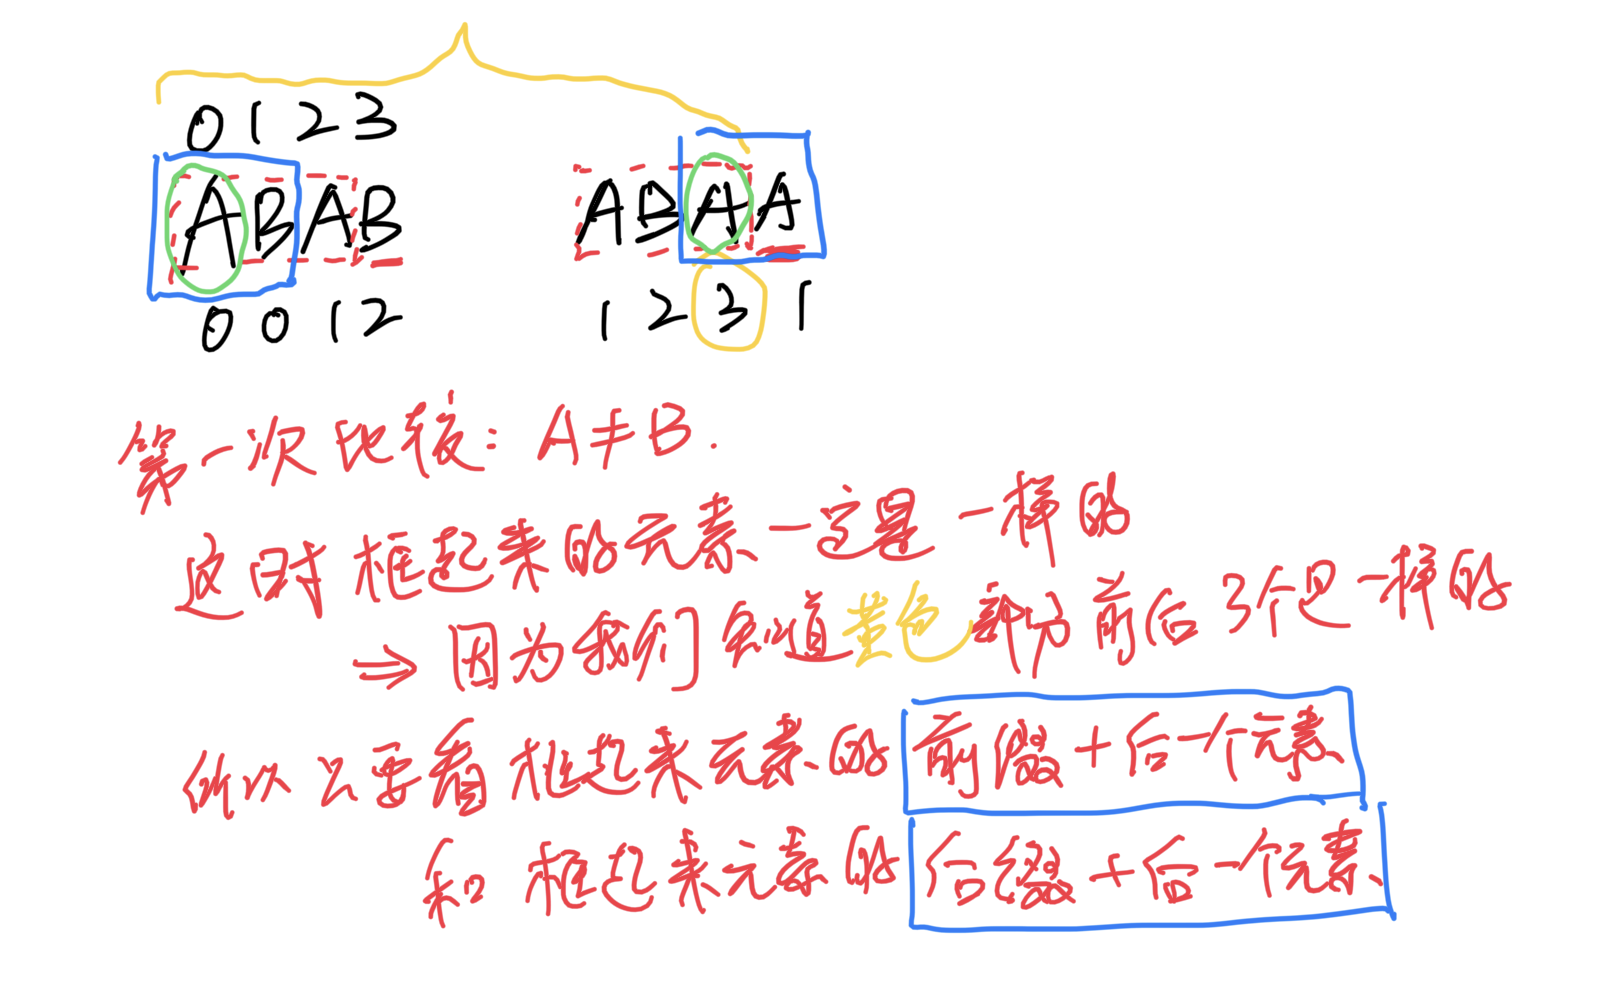 0 1 2 3
A B A B A B A A
0 0 1 2 1 2 3 1
第一次比较: A≠B.
这时框起来的元素一定是一样的
⇒ 因为我们知道黄色部分前后3个是一样的
所以只要看框起来元素的前缀+后一个元素
和框起来元素的后缀+后一个元素